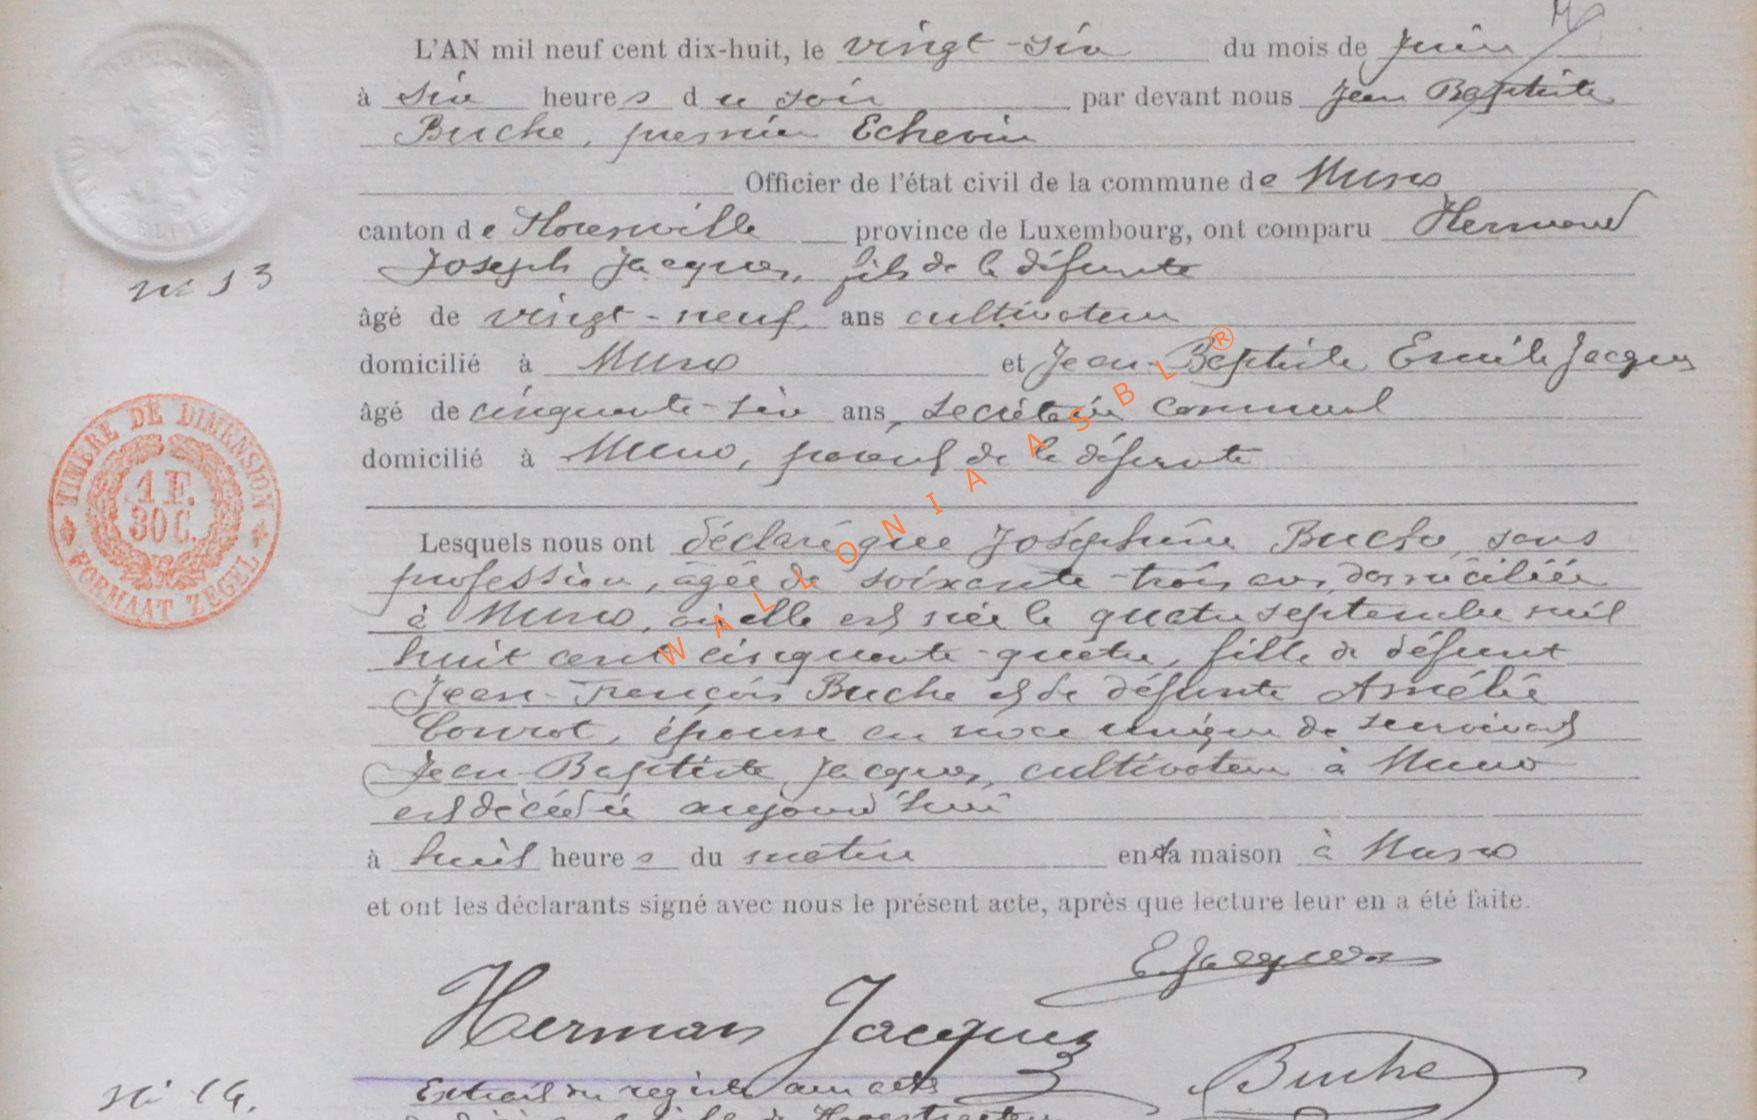 L'AN mil neuf cent dix-huit, le vingt-six du mois de Juin
à six heures du soir par devant nous Jean Baptiste
Buche, premier Echevin
Officier de l'état civil de la commune de Muno
canton de Florenville province de Luxembourg, ont comparu Hermand
Joseph Jacques, fils de la défunte
âgé de vingt-neuf ans cultivateur
domicilié à Muno et Jean-Baptiste Emile Jacques
âgé de cinquante-six ans, secrétaire communal
domicilié à Muno, parent de la défunte
Lesquels nous ont déclaré que Joséphine Buche, sans
profession, âgée de soixante-trois ans, domiciliée
à Muno, où elle est née le quatre septembre mil
huit cent cinquante-quatre, fille de défunt
Jean-François Buche et de défunte Amélie
Conrot, épouse en noce unique de survivant
Jean-Baptiste Jacques, cultivateur à Muno
est décédée aujourd'hui
à huit heures du matin en sa maison à Muno
et ont les déclarants signé avec nous le présent acte, après que lecture leur en a été faite.
E. Jacques
Herman Jacques
Buche
Extrait du registre aux actes
No 13
TIMBRE DE DIMENSION
1 F.
30 C.
FORMAAT ZEGEL
No 14.
WALLONIA ASBL ®